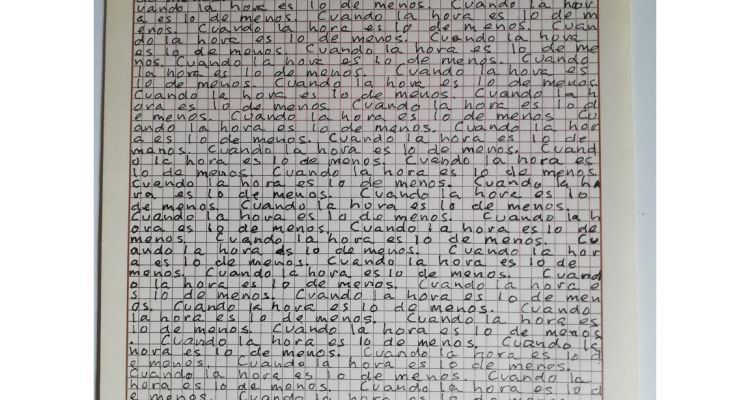 uando la hora es lo de menos. Cuando la hor
a es lo de menos. Cuando la hora es lo de m
enos. Cuando la hora es lo de menos. Cuan
do la hora es lo de menos. Cuando la hora
es lo de menos. Cuando la hora es lo de me
nos. Cuando la hora es lo de menos. Cuando
la hora es lo de menos. Cuando la hora es
lo de menos. Cuando la hora es lo de menos.
Cuando la hora es lo de menos. Cuando la h
ora es lo de menos. Cuando la hora es lo d
e menos. Cuando la hora es lo de menos. Cu
ando la hora es lo de menos. Cuando la hor
a es lo de menos. Cuando la hora es lo de
menos. Cuando la hora es lo de menos. Cuand
o la hora es lo de menos. Cuando la hora es
lo de menos. Cuando la hora es lo de menos.
Cuando la hora es lo de menos. Cuando la ho
ra es lo de menos. Cuando la hora es lo
de menos. Cuando la hora es lo de menos.
Cuando la hora es lo de menos. Cuando la h
ora es lo de menos. Cuando la hora es lo de
menos. Cuando la hora es lo de menos. Cu
ando la hora es lo de menos. Cuando la hor
a es lo de menos. Cuando la hora es lo de
menos. Cuando la hora es lo de menos. Cuand
o la hora es lo de menos. Cuando la hora e
s lo de menos. Cuando la hora es lo de men
os. Cuando la hora es lo de menos. Cuando
la hora es lo de menos. Cuando la hora es
lo de menos. Cuando la hora es lo de menos
. Cuando la hora es lo de menos. Cuando la
hora es lo de menos. Cuando la hora es lo d
e menos. Cuando la hora es lo de menos.
Cuando la hora es lo de menos. Cuando la
hora es lo de menos. Cuando la hora es lo d
e menos. Cuando la hora es lo de menos.